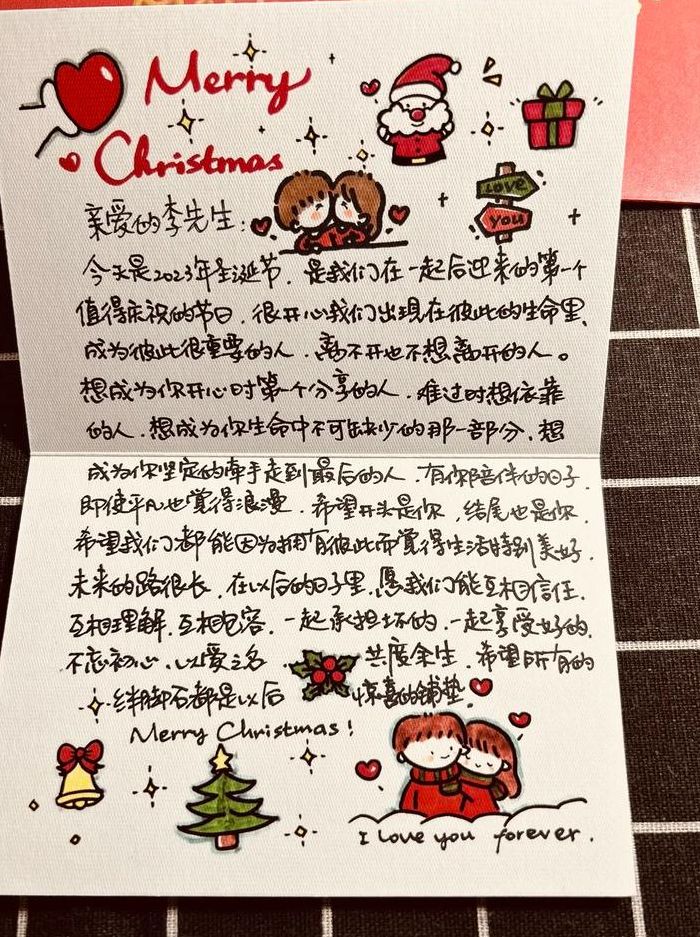 Merry
Christmas
LOVE
YOU
亲爱的李先生:
今天是2023年圣诞节，是我们在一起后迎来的第一个
值得庆祝的节日，很开心我们出现在彼此的生命里，
成为彼此很重要的人，离不开也不想离开的人。
想成为你开心时第一个分享的人，难过时想依靠
的人，想成为你生命中不可缺少的那一部分，想
成为你坚定的牵手走到最后的人，有你陪伴的日子，
即使平凡也觉得浪漫，希望开头是你，结尾也是你，
希望我们都能因为拥有彼此而觉得生活特别美好，
未来的路很长，在以后的日子里，愿我们能互相信任，
互相理解，互相包容，一起承担坏的，一起享受好的，
不忘初心，以爱之名 共度余生，希望所有的
绊脚石都是以后 惊喜的铺垫。
Merry Christmas!
I love you forever.